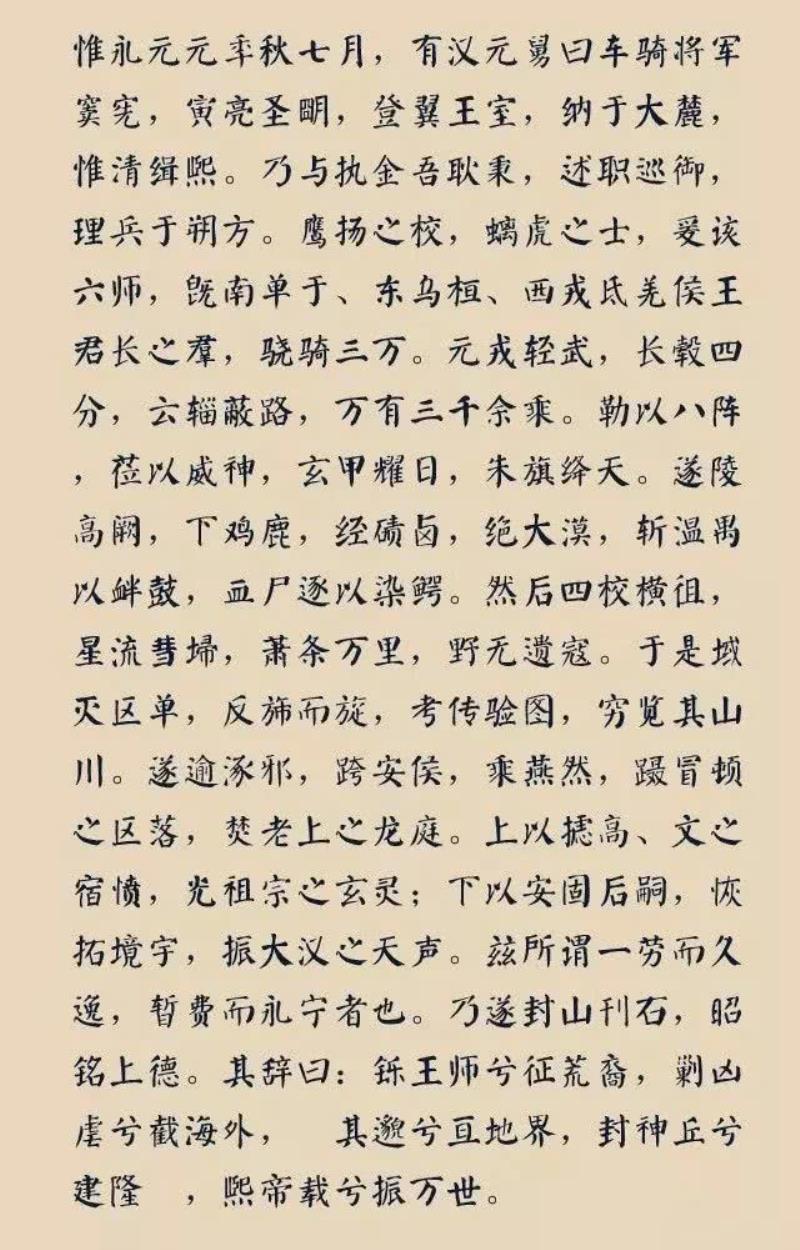 惟永元元年秋七月，有汉元舅曰车骑将军
窦宪，寅亮圣明，登翼王室，纳于大麓，
惟清缉熙。乃与执金吾耿秉，述职巡御，
理兵于朔方。鹰扬之校，螭虎之士，爰该
六师，既南单于、东乌桓、西戎氐羌侯王
君长之群，骁骑三万。元戎轻武，长毂四
分，云辎蔽路，万有三千余乘。勒以八阵
，莅以威神，玄甲耀日，朱旗绛天。遂陵
高阙，下鸡鹿，经碛卤，绝大漠，斩温禺
以衅鼓，血尸逐以染鳄。然后四校横徂，
星流彗埽，萧条万里，野无遗寇。于是域
灭区单，反旆而旋，考传验图，穷览其山
川。遂逾涿邪，跨安侯，乘燕然，蹑冒顿
之区落，焚老上之龙庭。上以摅高、文之
宿愤，光祖宗之玄灵；下以安固后嗣，恢
拓境宇，振大汉之天声。兹所谓一劳而久
逸，暂费而永宁者也。乃遂封山刊石，昭
铭上德。其辞曰：铄王师兮征荒裔，剿凶
虐兮截海外， 其邈兮亘地界，封神丘兮
建隆 ，熙帝载兮振万世。